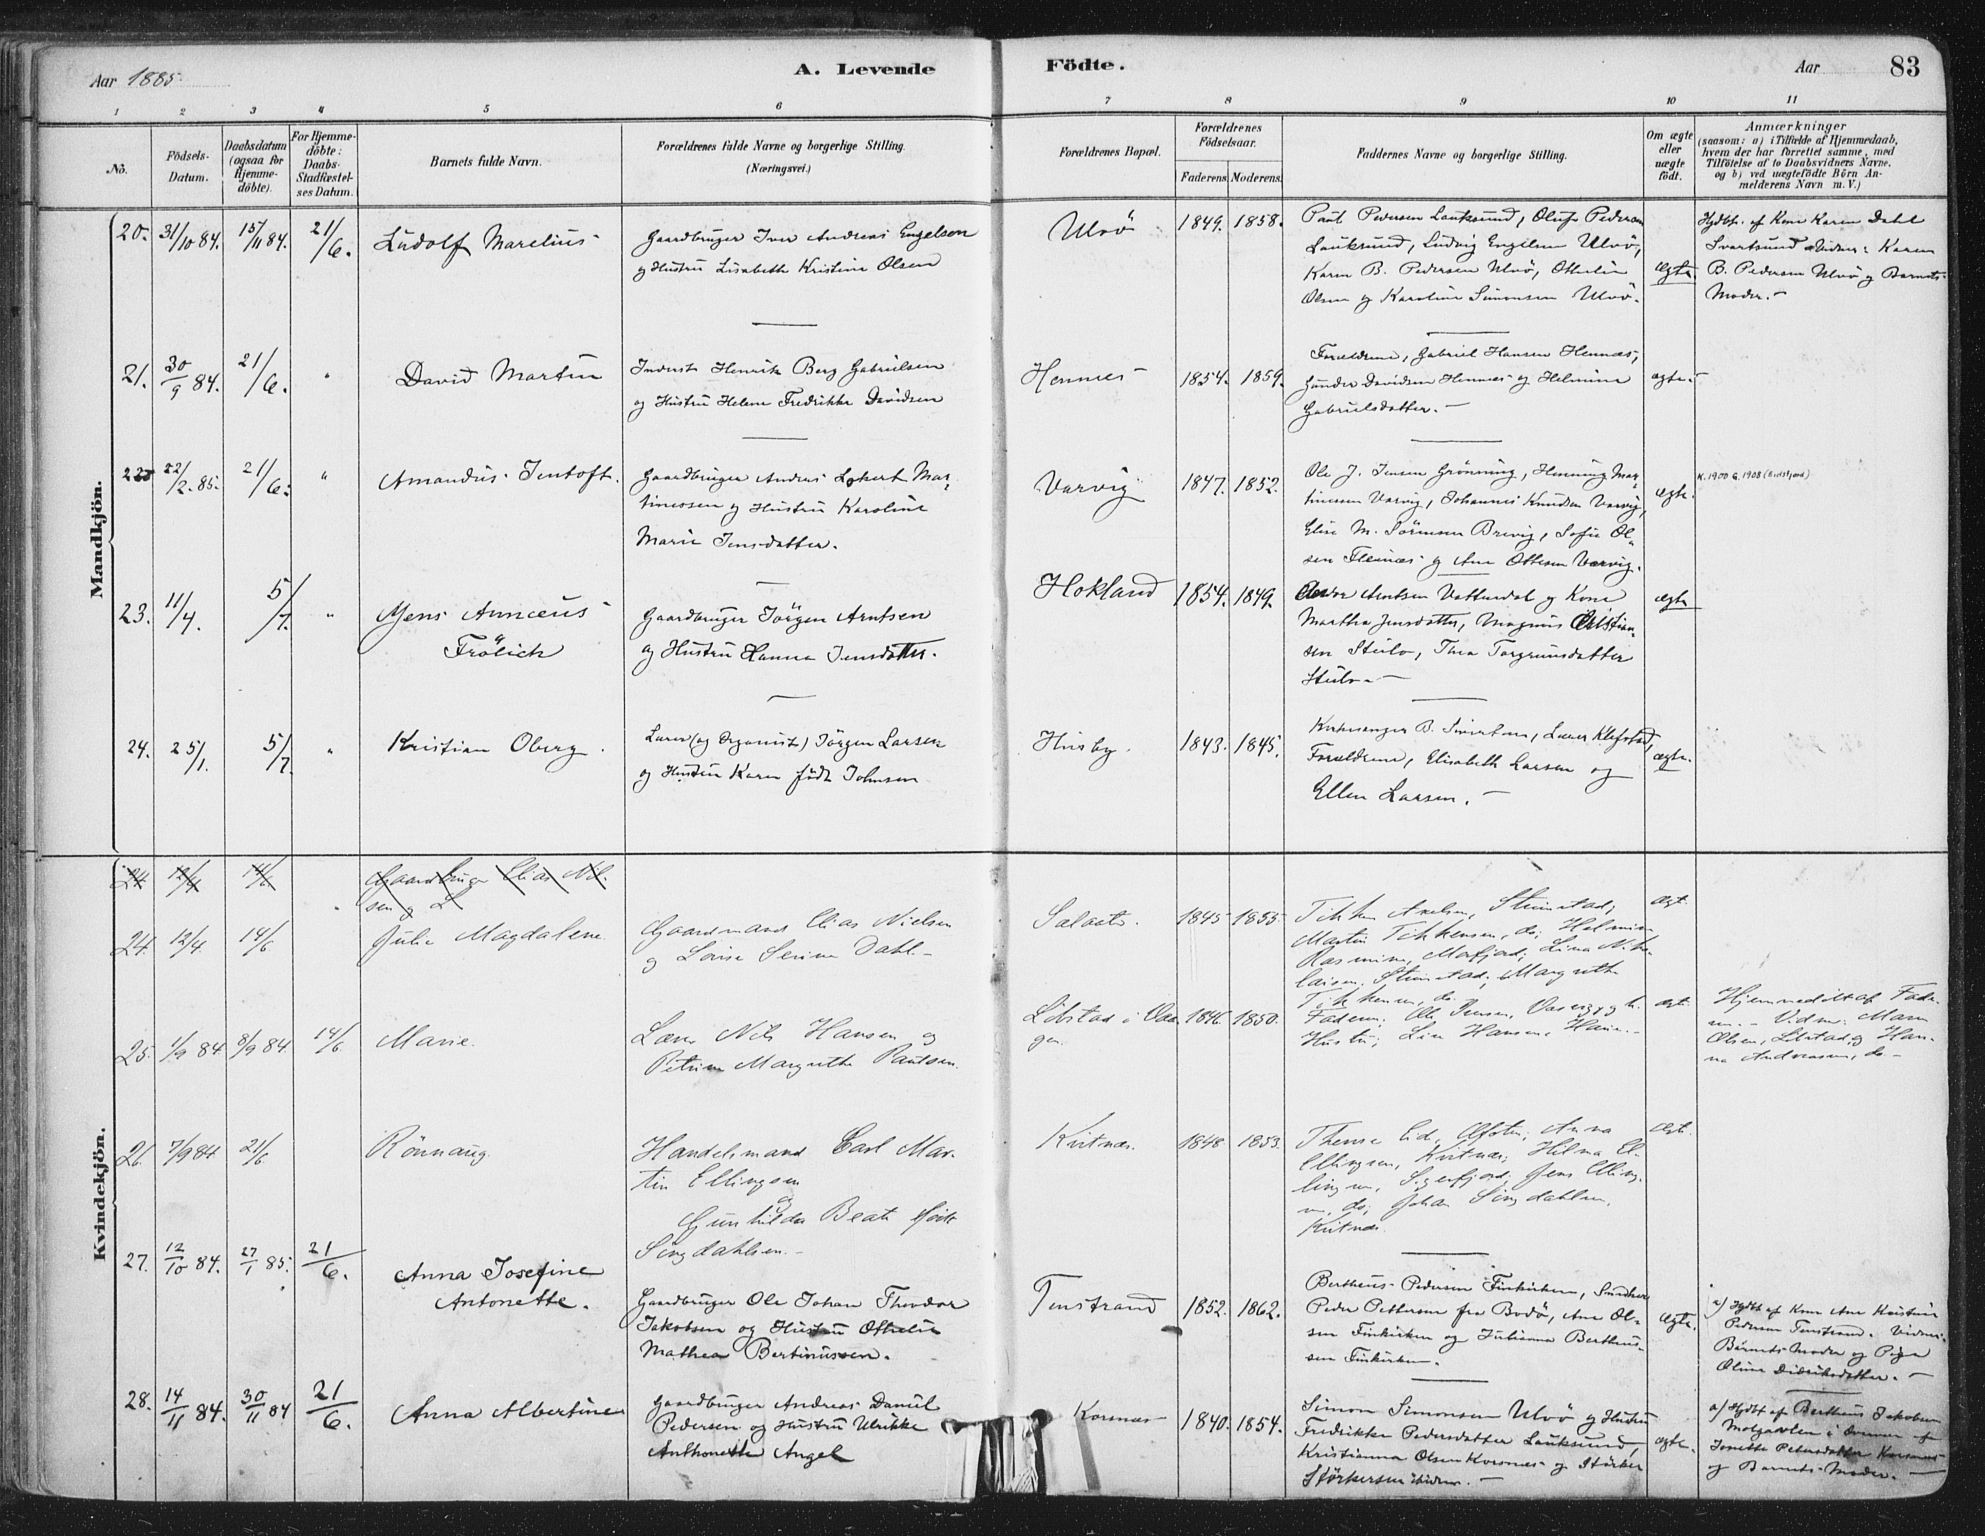 Aar 1885.
A. Levende
Födte.
Aar
83
1 2 3 4 5 6 7 8 9 10 11
No.
Födsels-
Datum.
Daabsdatum
(ogsaa for
Hjemme-
döbte).
For Hjemme-
döbte:
Daabs-
Stadfæstel-
ses Datum.
Barnets fulde Navn.
Forældrenes fulde Navne og borgerlige Stilling.
(Næringsvei.)
Forældrenes Bopæl.
Forældrenes
Födselsaar.
Faderens. Moderens.
Faddernes Navne og borgerlige Stilling.
Om ægte
eller
uægte
födt.
Anmærkninger
(saasom: a) i Tilfælde af Hjemmedaab,
hvem der har forrettet samme, med
Tilföielse af to Daabsvidners Navne,
og b) ved uægtefödte Börn An-
melderens Navn m. V.)
Mandkjön.
20. 31/10 84. 15/11 84. 21/6.
Ludolf Marelius
Gaardbruger Iver Andreas Engelsen
og Hustru Lisabeth Kristine Olsen
Ulvö
1849. 1858.
Paul Pedersen Lauksund, Oluf Pedersen
Lauksund, Ludvig Engelsen Ulvö,
Karen B. Pedersen Ulvö, Othelie
Olsen og Karoline Simonsen Ulvö.
ægte.
Hjdbt. af Kone Karen Dahl
Svartsund Vidner: Karen
B. Pedersen Ulvö og Barnets
Moder.
21. 30/9 84. 21/6. "
David Martin
Inderst Henrik Berg Gabrielsen
og Hustru Helene Fredrikke Davidsen
Hennes
1854. 1859.
Forældrene, Gabriel Hansen Hennes,
Gunder Davidsen Hennes og Helmine
Gabrielsdatter.
ægte.
22 22/2. 85. 21/6. "
Amandus Jentoft.
Gaardbruger Andreas Lokert Mar-
tinussen og Hustru Karoline
Marie Jensdatter.
Varvig
1847. 1852.
Ole J. Jensen Grönning, Henning Mar-
tinussen Varvig, Johannes Knudsen Varvig,
Elise M. Sörensen Brevig, Sofie Ol-
sen Flesnæs og Ane Ottesen Varvig.
ægte.
K. 1900 G. 1908 (Eidsfjord)
23. 11/4. 5/7. "
Jens Annæus
Frölich
Gaardbruger Jörgen Arntsen
og Hustru Hanna Jensdatter.
Hokland
1854. 1849.
Arntsen Vatterdal og Kone
Martha Jensdatter, Magnus Cristian-
sen Stuilo, Thea Torgrimsdatter
Stuilo.
ægte
24. 25/1. 5/7. "
Kristian Oberg.
Lærer (og Organist) Jörgen Larsen
og Hustru Karen födt Johnsen
Husby.
1843. 1845.
Kirkesanger B. Sivertsen, Lærer Klefstad,
Forældrene, Elisabeth Larsen og
Ellen Larsen.
ægte.
Kvindekjön.
24 12/4 14/6
Gaardbruger Elias Nil-
sen og L
24. 12/4. 14/6.
Julie Magdalene
Gaardmand Elias Nielsen
og Lovise Serine Dahl.
1845 1855
Tikken Axelsen, Steinstad,
Martin Tikkensen, do; Helmine
Rasmine, Morfjord; Lina Niko-
laisen, Steinstad; Margrethe
Tikkensen, do.
ægt.
25. 1/9 84 8/9 84. 14/6
Marie.
Lærer Nils Hansen og
Petrine Margrethe Paulsen.
Libstad i Vaa-
gen.
1846. 1850.
Faderen; Ole Jensen,
Hustru; Hansen,
ægt.
Hjemmedöbt af Fade-
ren. Vidner: Maren
Olsen, Libstad, og Han-
na Andreassen, do
26. 7/9 84 21/6
Rönnaug.
Handelsmand Carl Mar-
tin Ellingsen
og
Gunhilda Beate födt
Singdahlsen.
Kvitnæs.
1848 1853
Therese Eid, Anna
Ellingsen, Kvitnæs; Hilma El-
lingsen, Sigerfjord, Jens Elling-
sen, do; Johan Singdahlsen,
Kvitnæs
ægt.
27. 12/10 84. 27/1 85. 21/6.
Anna Josefine
Antonette.
Gaardbruger Ole Johan Theodor
Jakobsen og Hustru Othelie
Mathea Bertinussen.
Tenstrand
1852. 1862.
Bertheus Pedersen Finkirken,
Peder Pettersen fra Bodö, Ane Ol-
sen Finkirken og Julianna Bertheus-
sen Finkirken.
ægte.
a) Hjdbt af Kone Ane Kristine
Pedersen Tenstrand. Vidner:
Barnets Moder og Pige
Oline Didriksdatter.
28. 14/11 84. 30/11 84 21/6.
Anna Albertine
Gaardbruger Andreas Daniel
Pedersen og Hustru Ulrikke
Anthonette Angel
Korsnæs
1840. 1854.
Simon Simonsen Ulvö og Hustru
Fredrikke Pedersdatter Lauksund,
Kristianna Olsen Korsnæs og Störker
Störkersen ibidem.
ægte.
a) Hjdbt af Bertheus Jakobsen
Jonette Petersdatter Korsnæs
og Barnets Moder.